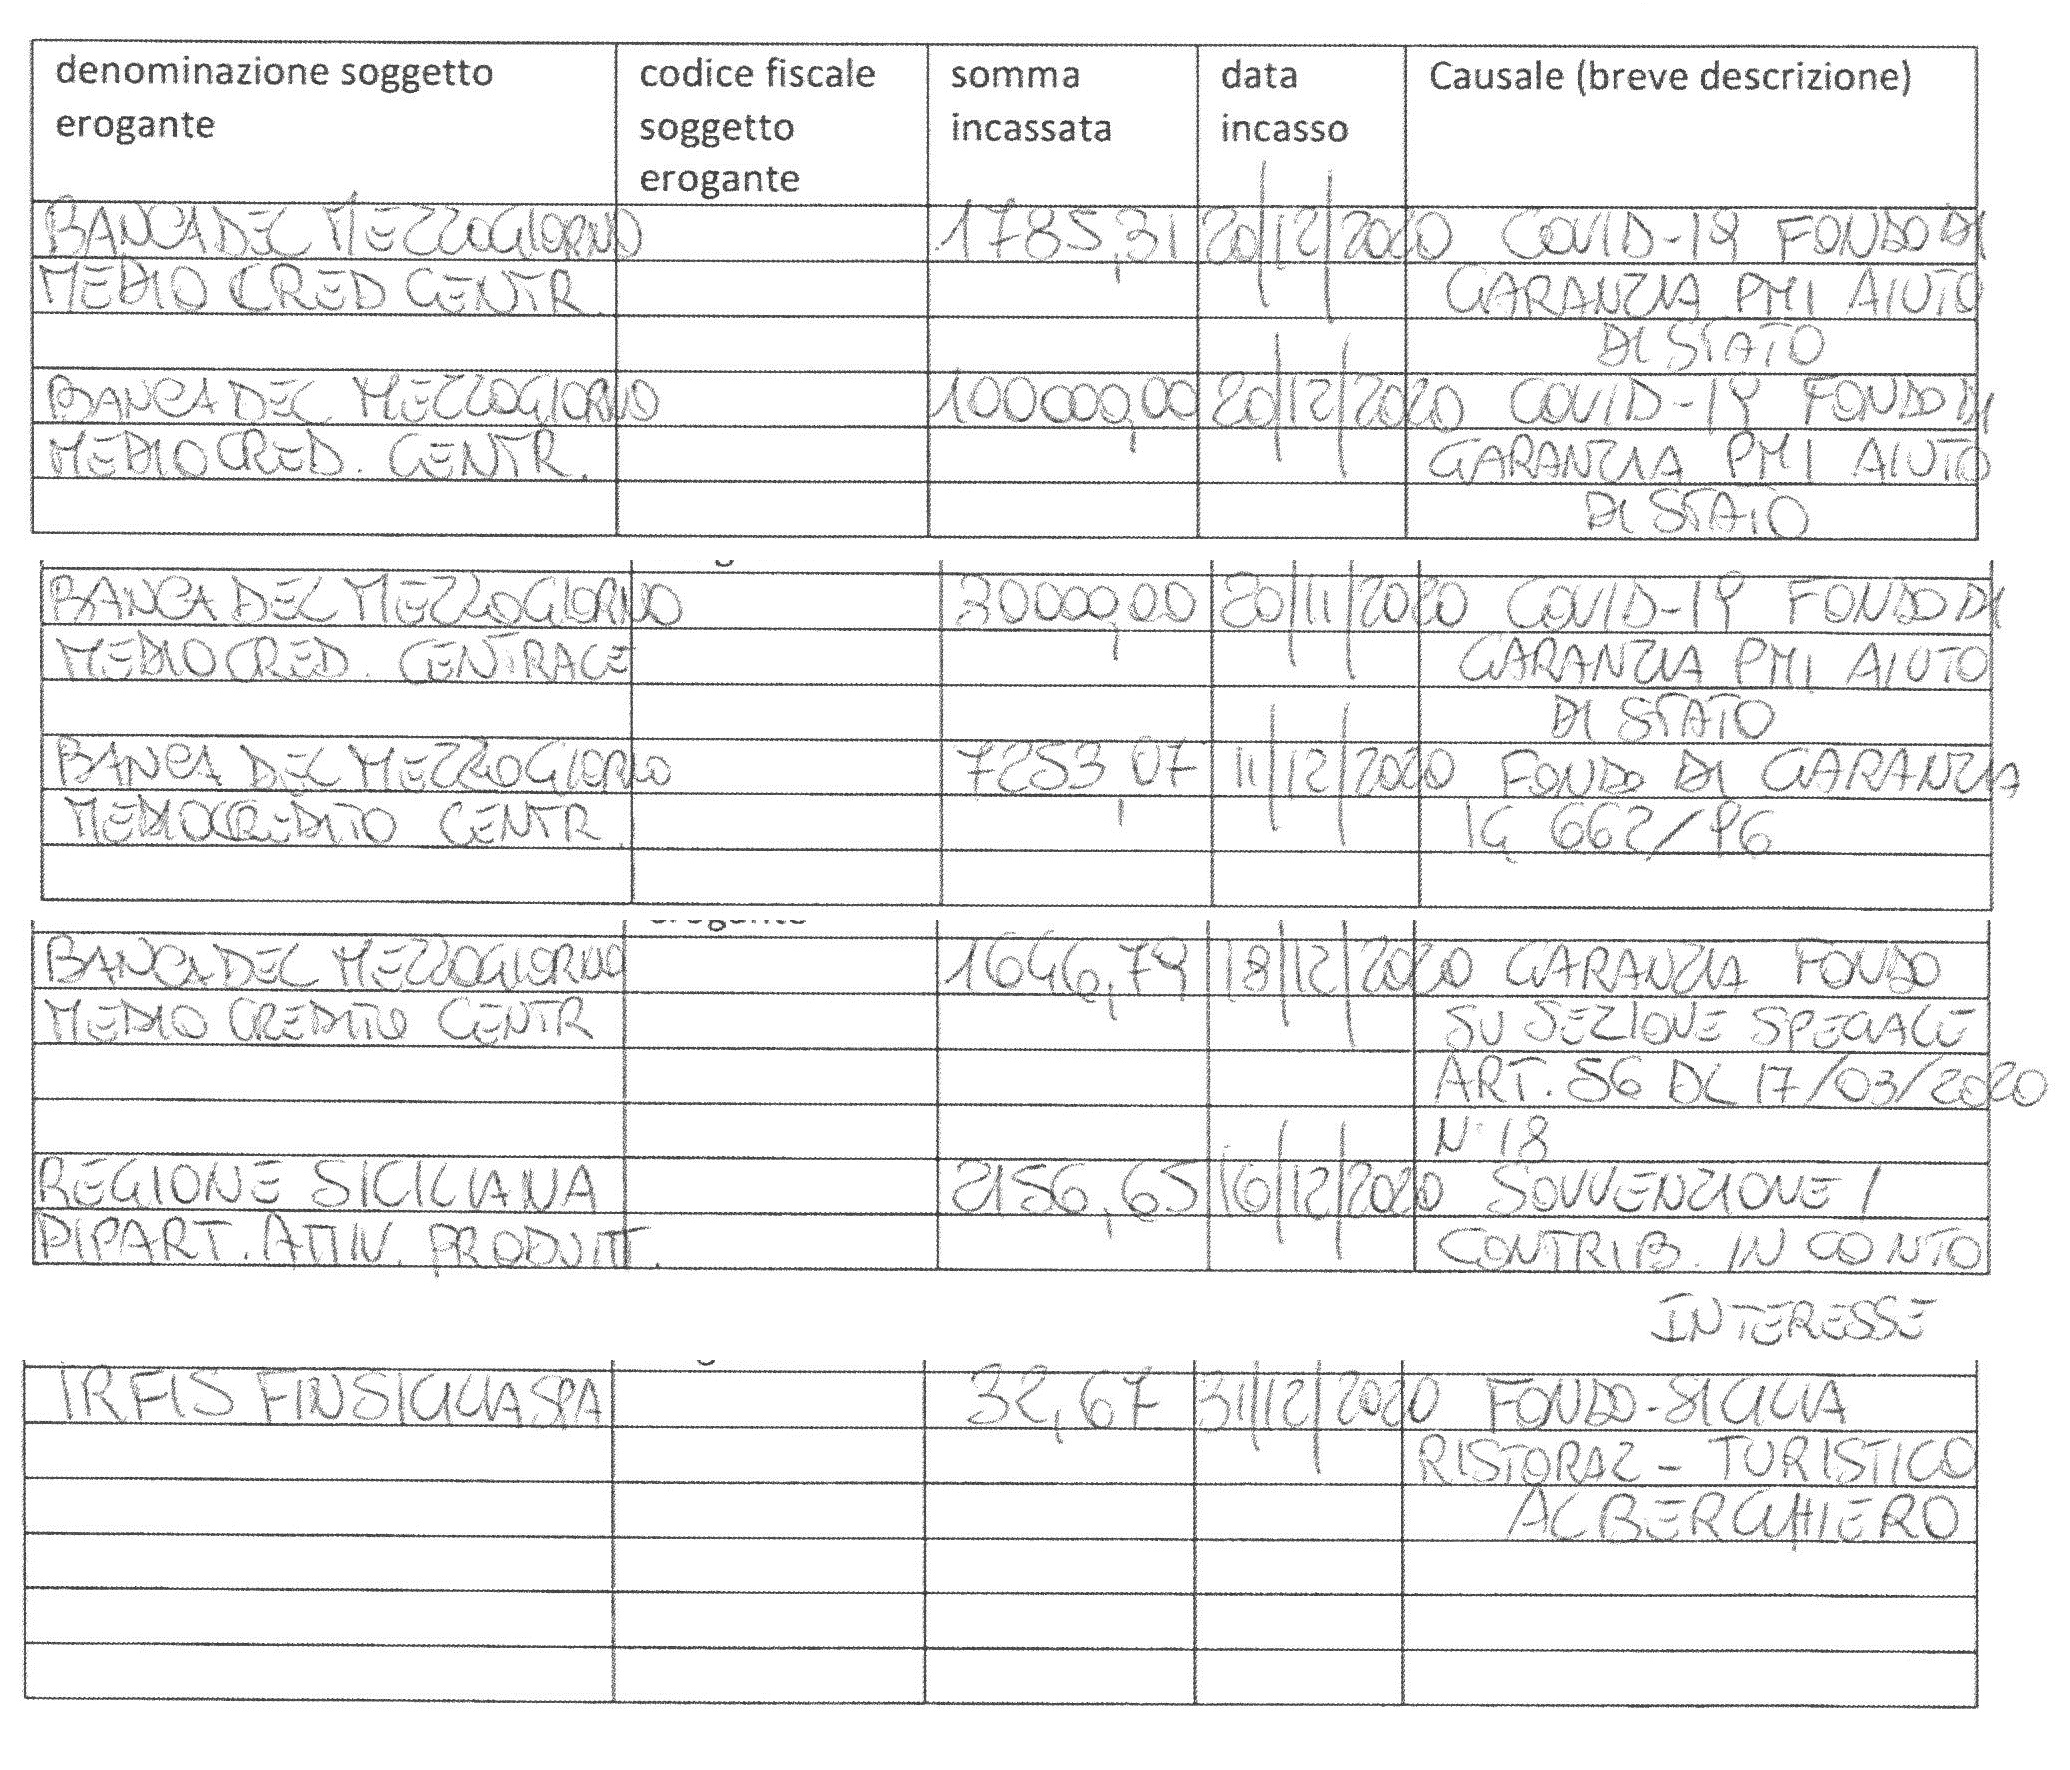 denominazione soggetto erogante codice fiscale soggetto erogante somma incassata data incasso Causale (breve descrizione)
BANCA DEL MEZZOGIORNO 1785,31 20/12/2020 COVID-19 FONDO DI
MEDIO CRED CENTR. GARANZIA PMI AIUTO
DI STATO
BANCA DEL MEZZOGIORNO 100000,00 20/12/2020 COVID-19 FONDO DI
MEDIOCRED. CENTR. GARANZIA PMI AIUTO
DI STATO
BANCA DEL MEZZOGIORNO 30000,00 20/11/2020 COVID-19 FONDO DI
MEDIOCRED. CENTRALE GARANZIA PMI AIUTO
DI STATO
BANCA DEL MEZZOGIORNO 7253,07 11/12/2020 FONDO DI GARANZIA
MEDIOCREDITO CENTR. 662/96
erogante
BANCA DEL MEZZOGIORNO 1646,79 18/12/2020 GARANZIA FONDO
MEDIO CREDITO CENTR SU SEZIONE SPECIALE
ART. 56 DL 17/03/2020
N° 18
REGIONE SICILIANA 2156,65 16/12/2020 SOVVENZIONE /
DIPART. ATTIV. PRODUTT. CONTRIB. IN CONTO
INTERESSE
IRFIS FINSICILIA SPA 32,67 31/12/2020 FONDO-SICILIA
RISTORAZ - TURISTICO
ALBERGHIERO